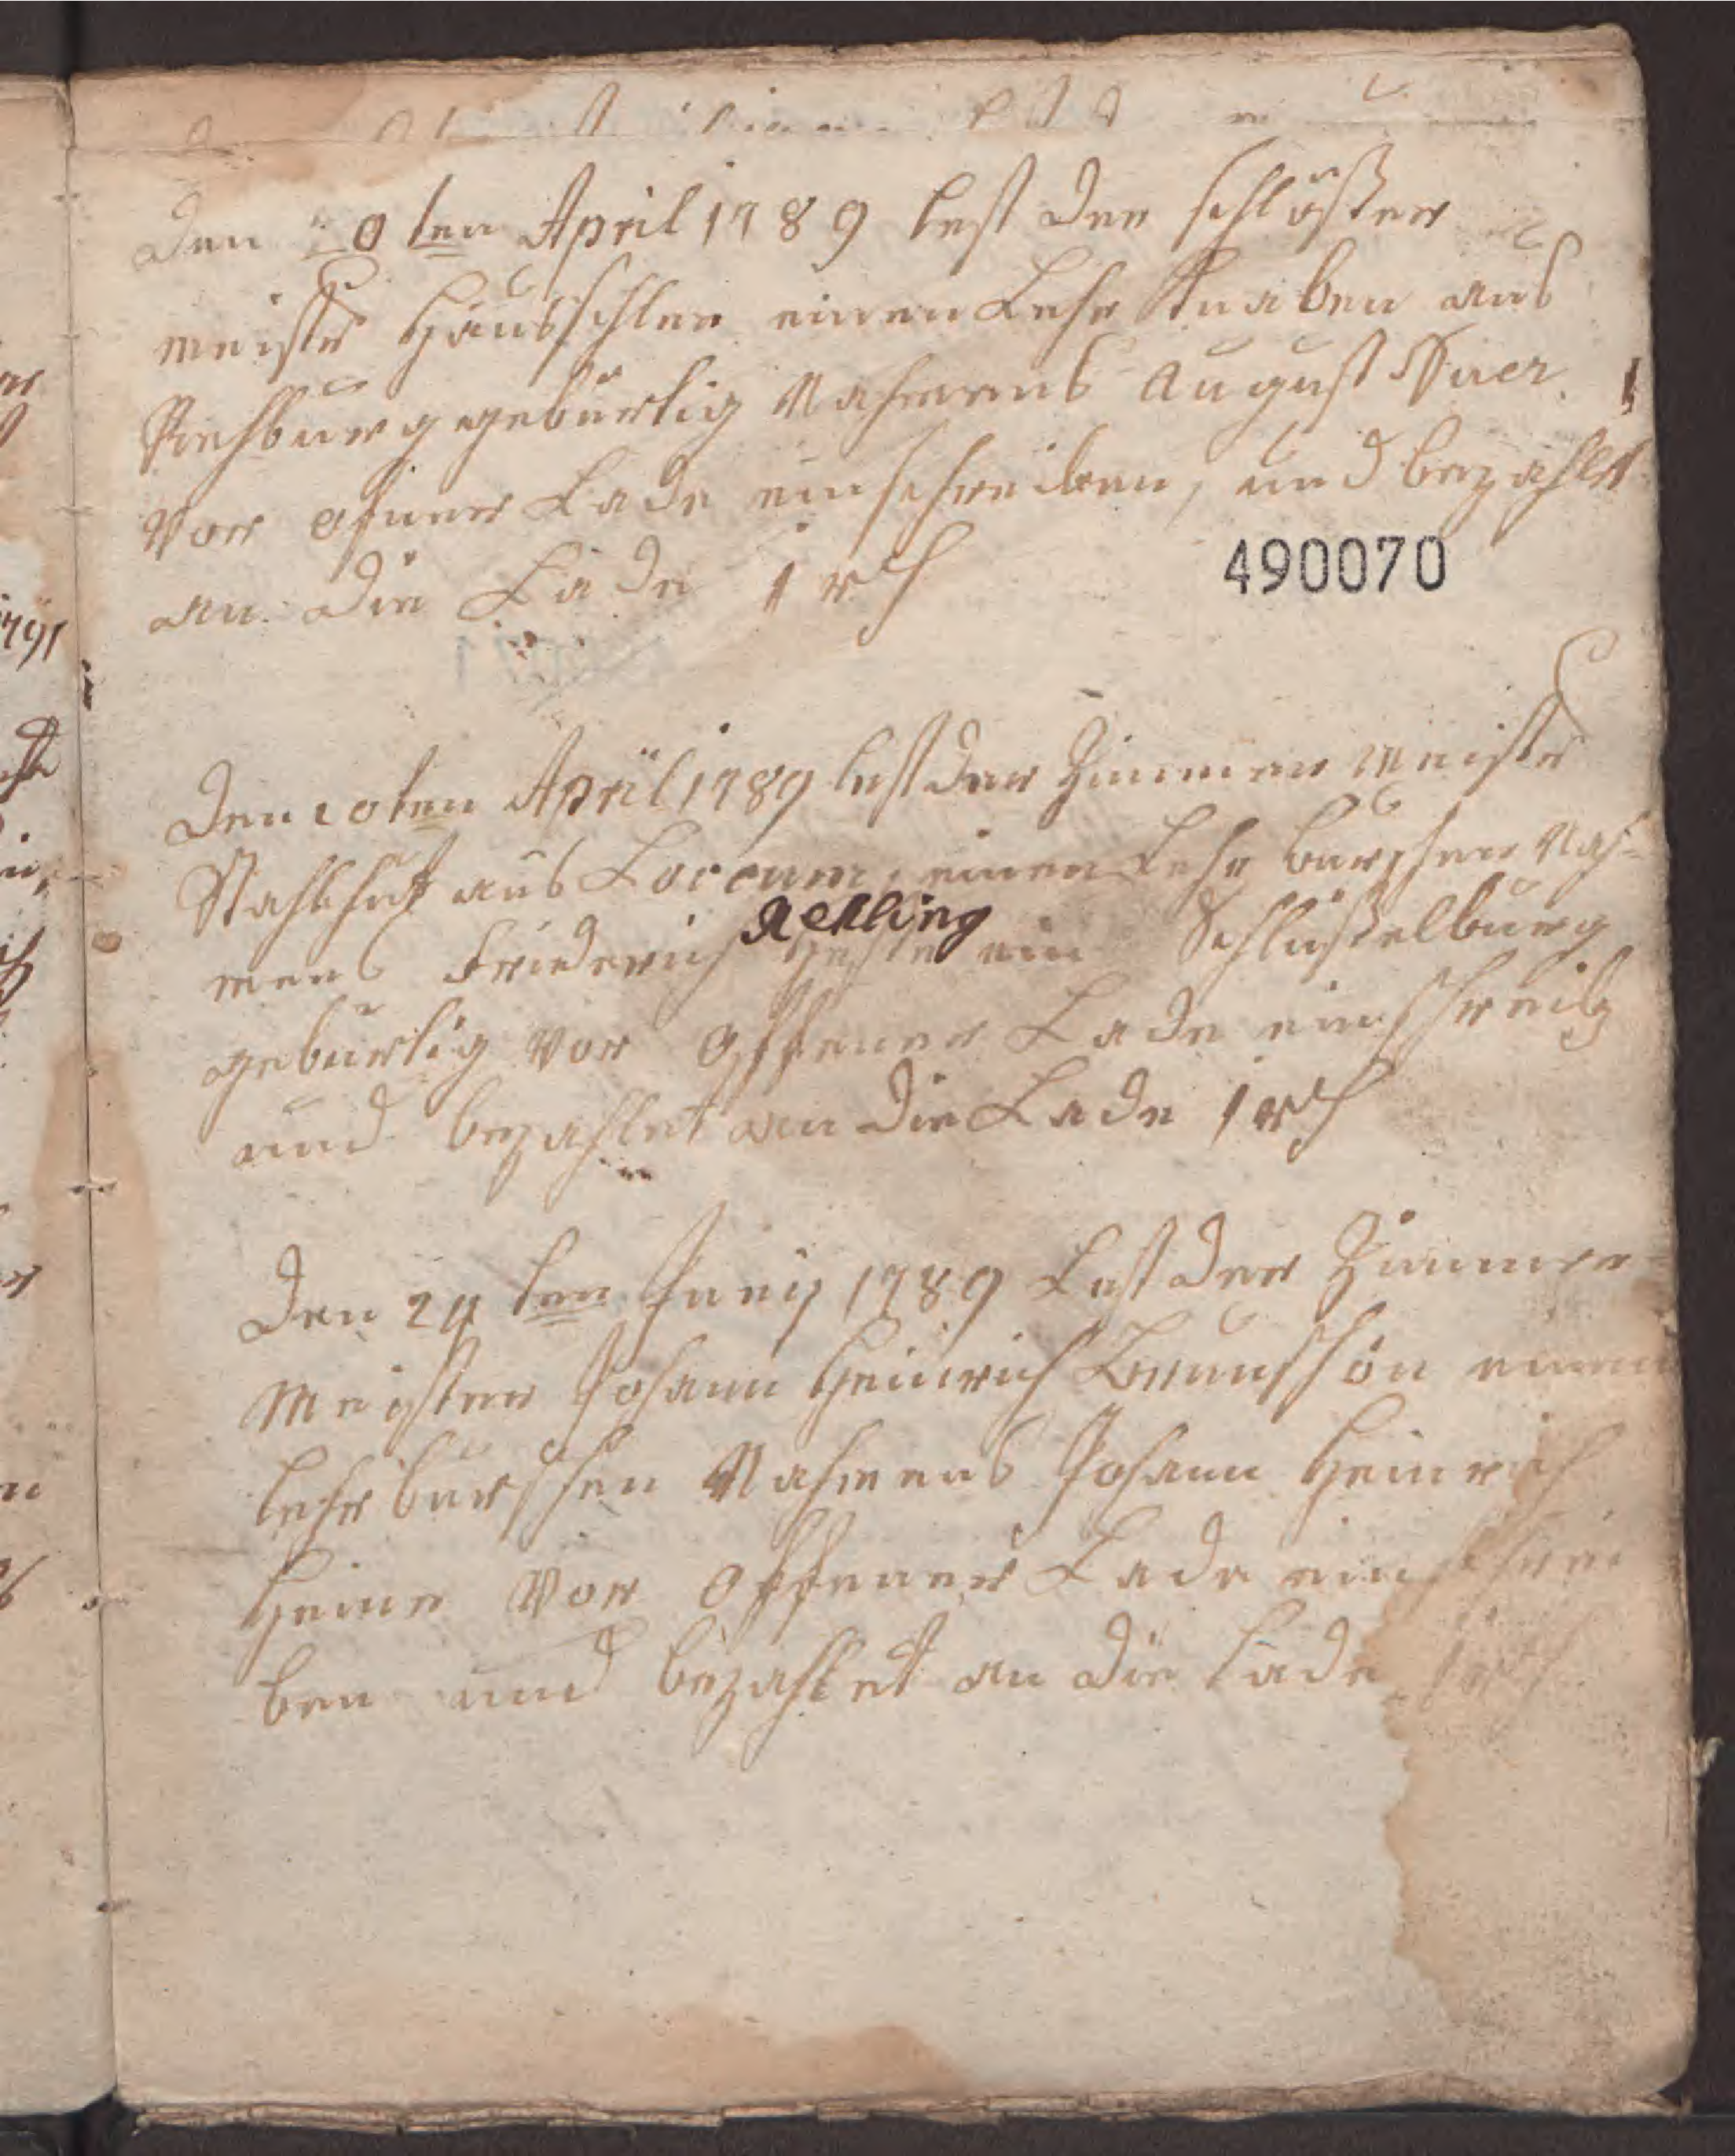 Den 20ten April 1789 lest der schlößer
meister Haubschler einen Lehr Knaben aus
Rehburg gebürtig Nahmens August
Vor ofner Lade einschreiben, und bezahlt
an die Lade 1 rth
490070
Den 20ten April 1789 lest der Zimmer Meister
Stahlhut aus Loccum, einen Lehr burschen Nah-
mens Friederich Aekling ein Schlüßelburg
gebürtig vor offener Lade einschreib
und bezahlet an die Lade 1 rth
Den 24ten Juny 1789 Lest der Zimmer
Meister Johann Heinrich einen
lehr burschen Nahmens Johann Heinrich
Heine Vor offener Lade einschrei
ben und bezahlet an die Lade 1 rth